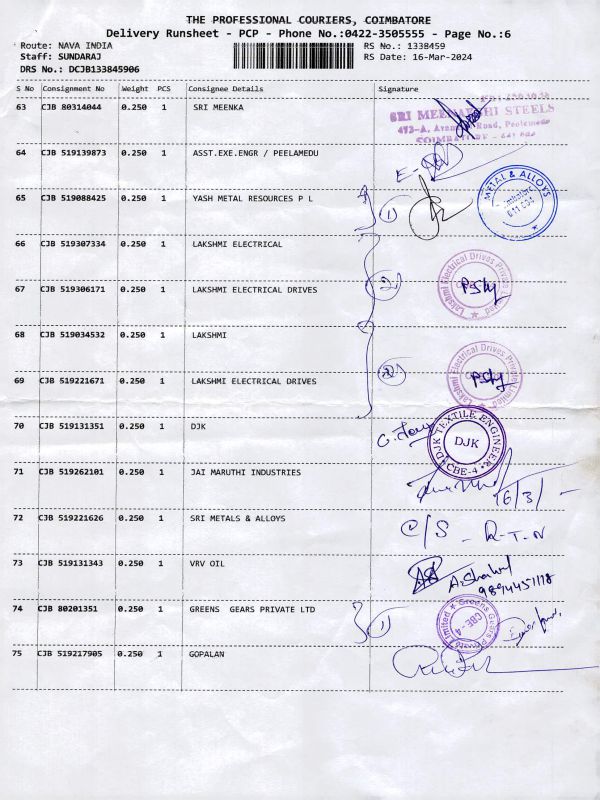 THE PROFESSIONAL COURIERS, COIMBATORE
Delivery Runsheet - PCP - Phone No.:0422-3505555 - Page No.:6
Route: NAVA INDIA
RS No.: 1338459
Staff: SUNDARAJ
RS Date: 16-Mar-2024
DRS No.: DCJB133845906
S No Consignment No Weight PCS Consignee Details Signature
63 CJB 80314044 0.250 1 SRI MEENKA
SRI STEELS
64 CJB 519139873 0.250 1 ASST.EXE.ENGR / PEELAMEDU
65 CJB 519088425 0.250 1 YASH METAL RESOURCES P L
1
METAL & ALLOYS
66 CJB 519307334 0.250 1 LAKSHMI ELECTRICAL
67 CJB 519306171 0.250 1 LAKSHMI ELECTRICAL DRIVES
2
Lakshmi Electrical Drives Private Limited
68 CJB 519034532 0.250 1 LAKSHMI
69 CJB 519221671 0.250 1 LAKSHMI ELECTRICAL DRIVES
2
Lakshmi Electrical Drives Private Limited
70 CJB 519131351 0.250 1 DJK
DJK TEXTILE ENGINEER
DJK
CBE-4
71 CJB 519262101 0.250 1 JAI MARUTHI INDUSTRIES
16/3/-
72 CJB 519221626 0.250 1 SRI METALS & ALLOYS
C/S - R-T-N
73 CJB 519131343 0.250 1 VRV OIL
9894451118
74 CJB 80201351 0.250 1 GREENS GEARS PRIVATE LTD
1
Greens Gears Private Limited
CBE 4
75 CJB 519217905 0.250 1 GOPALAN